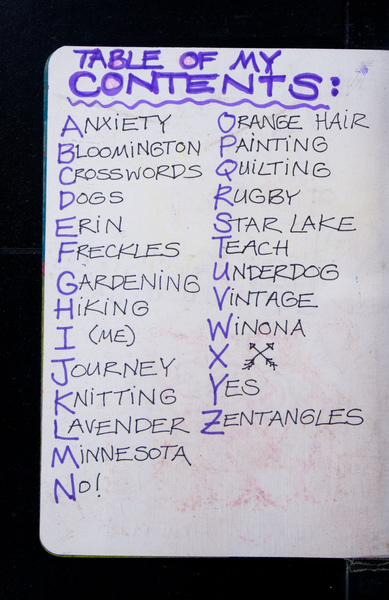 TABLE OF MY
CONTENTS:
ANXIETY
BLOOMINGTON
CROSSWORDS
DOGS
ERIN
FRECKLES
GARDENING
HIKING
I (ME)
JOURNEY
KNITTING
LAVENDER
MINNESOTA
NO!
ORANGE HAIR
PAINTING
QUILTING
RUGBY
STAR LAKE
TEACH
UNDERDOG
VINTAGE
WINONA
X
YES
ZENTANGLES